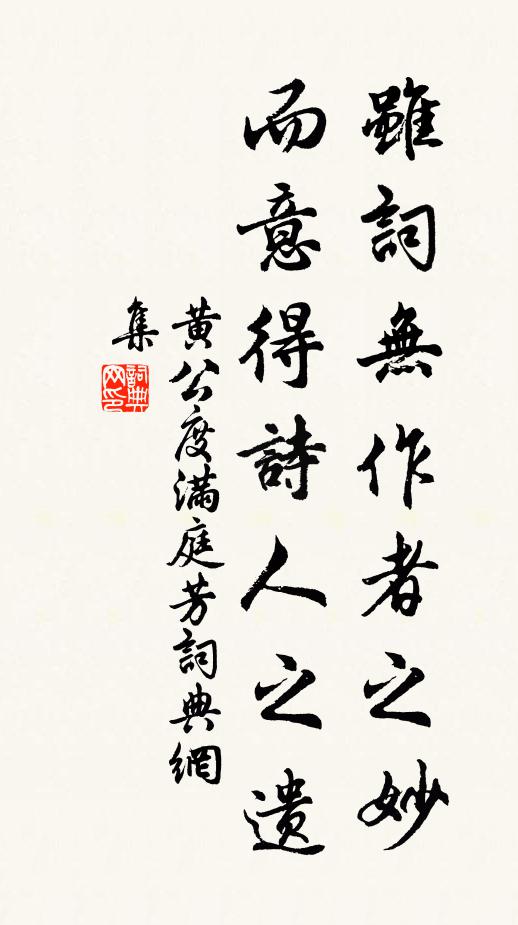 雖詞無作者之妙
而意得詩人之遺
黃公度滿庭芳詞典網
集
詞典
网印